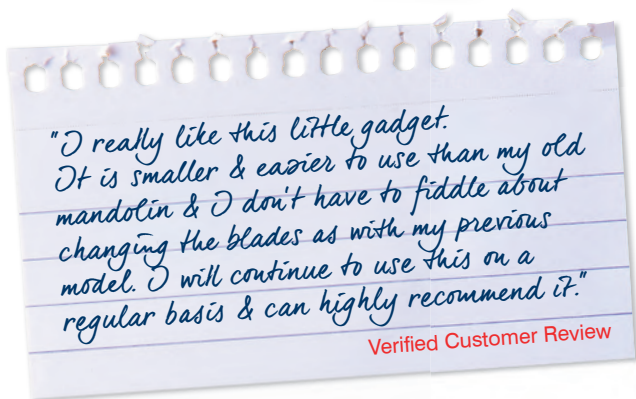 "I really like this little gadget.
It is smaller & easier to use than my old
mandolin & I don't have to fiddle about
changing the blades as with my previous
model. I will continue to use this on a
regular basis & can highly recommend it."
Verified Customer Review